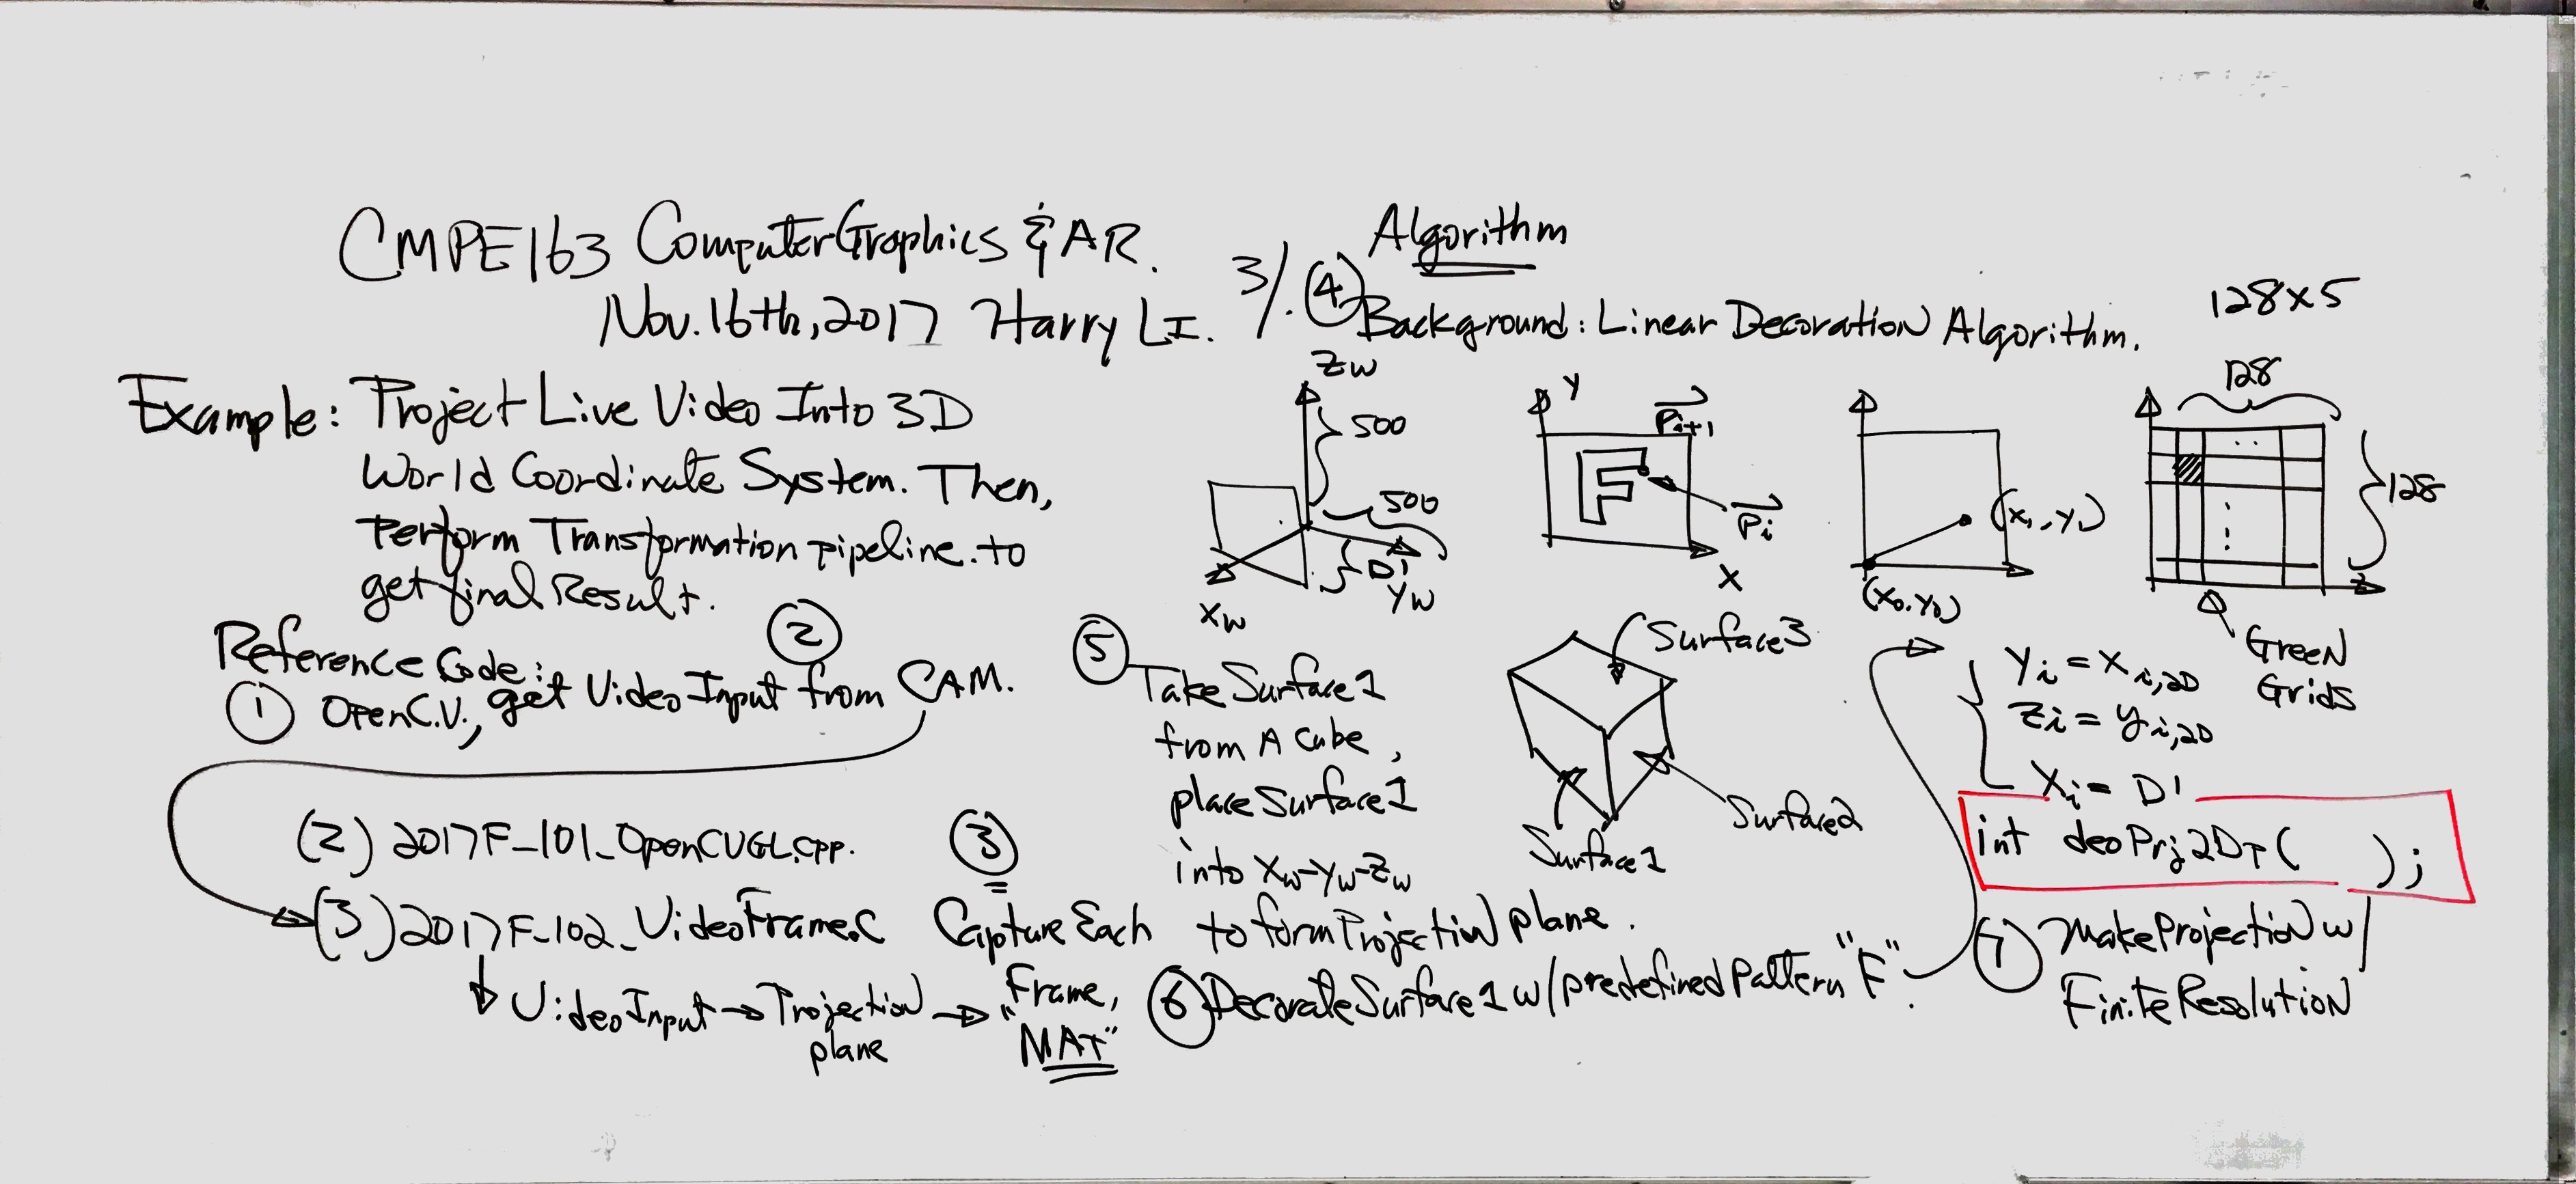 CMPE163 Computer Graphics & AR.
Nov. 16th, 2017 Harry LI. 3/.
Example: Project Live Video Into 3D
World Coordinate System. Then,
Perform Transformation pipeline. to
get final Result.
Reference Code:
① OpenC.V., get Video Input from CAM.
②
(2) 2017F_101_OpenCVGL.cpp.
(3) 2017F-102_VideoFrame.C
Video Input → Projection plane → "Frame, MAT"
③ Capture Each
Algorithm
④ Background: Linear Decoration Algorithm.
128x5
Zw
500
500
D1
Yw
Xw
Y
Pi+1
F
Pi
X
(X1, Y1)
(X0, Y0)
128
128
Green
Grids
⑤ Take Surface1
from A Cube,
place Surface1
into Xw-Yw-Zw
to form Projection plane.
Surface3
Surface2
Surface1
⑥ Decorate Surface1 w/ predefined Pattern "F".
Yi = Xi,2D
Zi = Yi,2D
Xi = D1
int deoPrj2DT( );
⑦ Make Projection w/
Finite Resolution